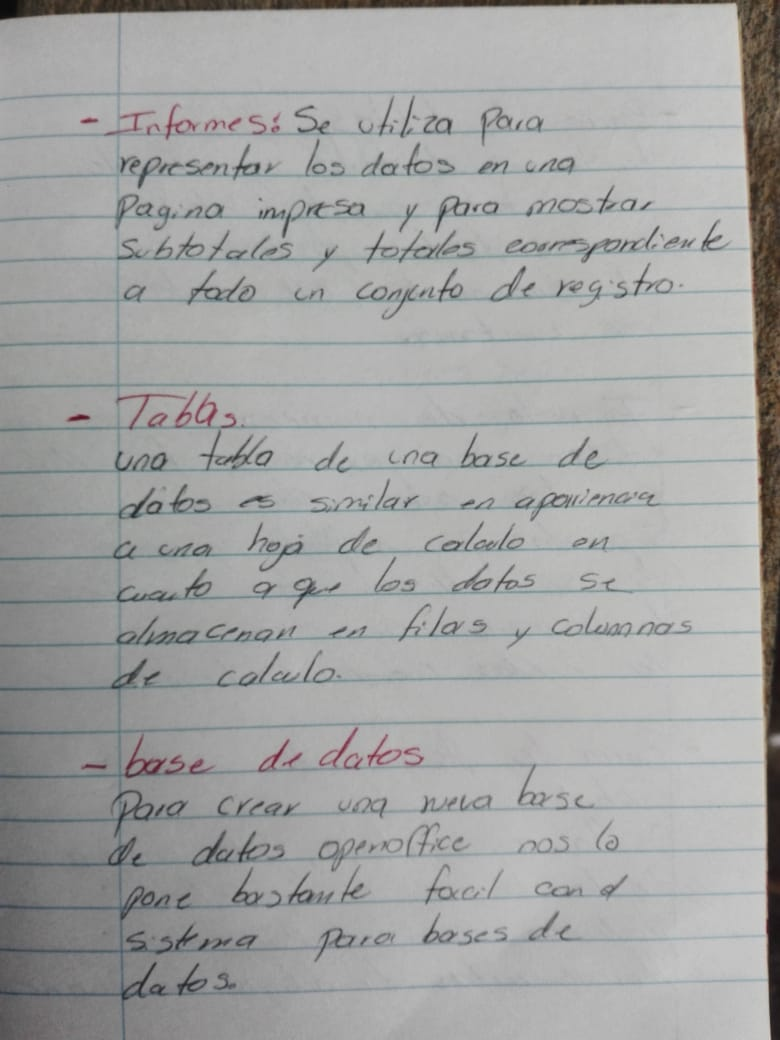 - Informes: Se utiliza para
representar los datos en una
Pagina impresa y para mostrar
Subtotales y totales correspondiente
a todo un conjunto de registro.
- Tablas.
una tabla de una base de
datos es similar en apariencia
a una hoja de calculo en
cuanto a que los datos se
almacenan en filas y columnas
de calculo.
- base de datos
Para crear una nueva base
de datos openoffice nos lo
pone bastante facil con el
sistema para bases de
datos.